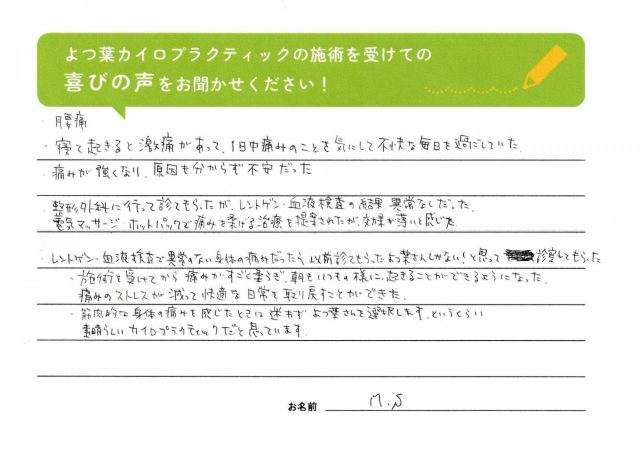 よつ葉カイロプラクティックの施術を受けての
喜びの声をお聞かせください！
・腰痛
・寝て起きると激痛があって、1日中痛みのことを気にして不快な毎日を過ごしていた。
・痛みが強くなり、原因も分からず不安だった
・整形外科に行って診てもらったが、レントゲン・血液検査の結果異常なしだった。
電気マッサージ・ホットパックで痛みを柔げる治療を提案されたが、効果が薄いと感じた
・レントゲン・血液検査で異常のない身体の痛みだったら、以前診てもらったよつ葉さんしかない！と思って 診察してもらった
・施術を受けてから痛みがすごく和らぎ、朝もいつもの様に起きることができるようになった。
痛みのストレスが減って快適な日常を取り戻すことができた。
・筋肉的な身体の痛みを感じたときは迷わずよつ葉さんを選択します。というくらい
素晴らしいカイロプラクティックだと思っています。
お名前 M.S